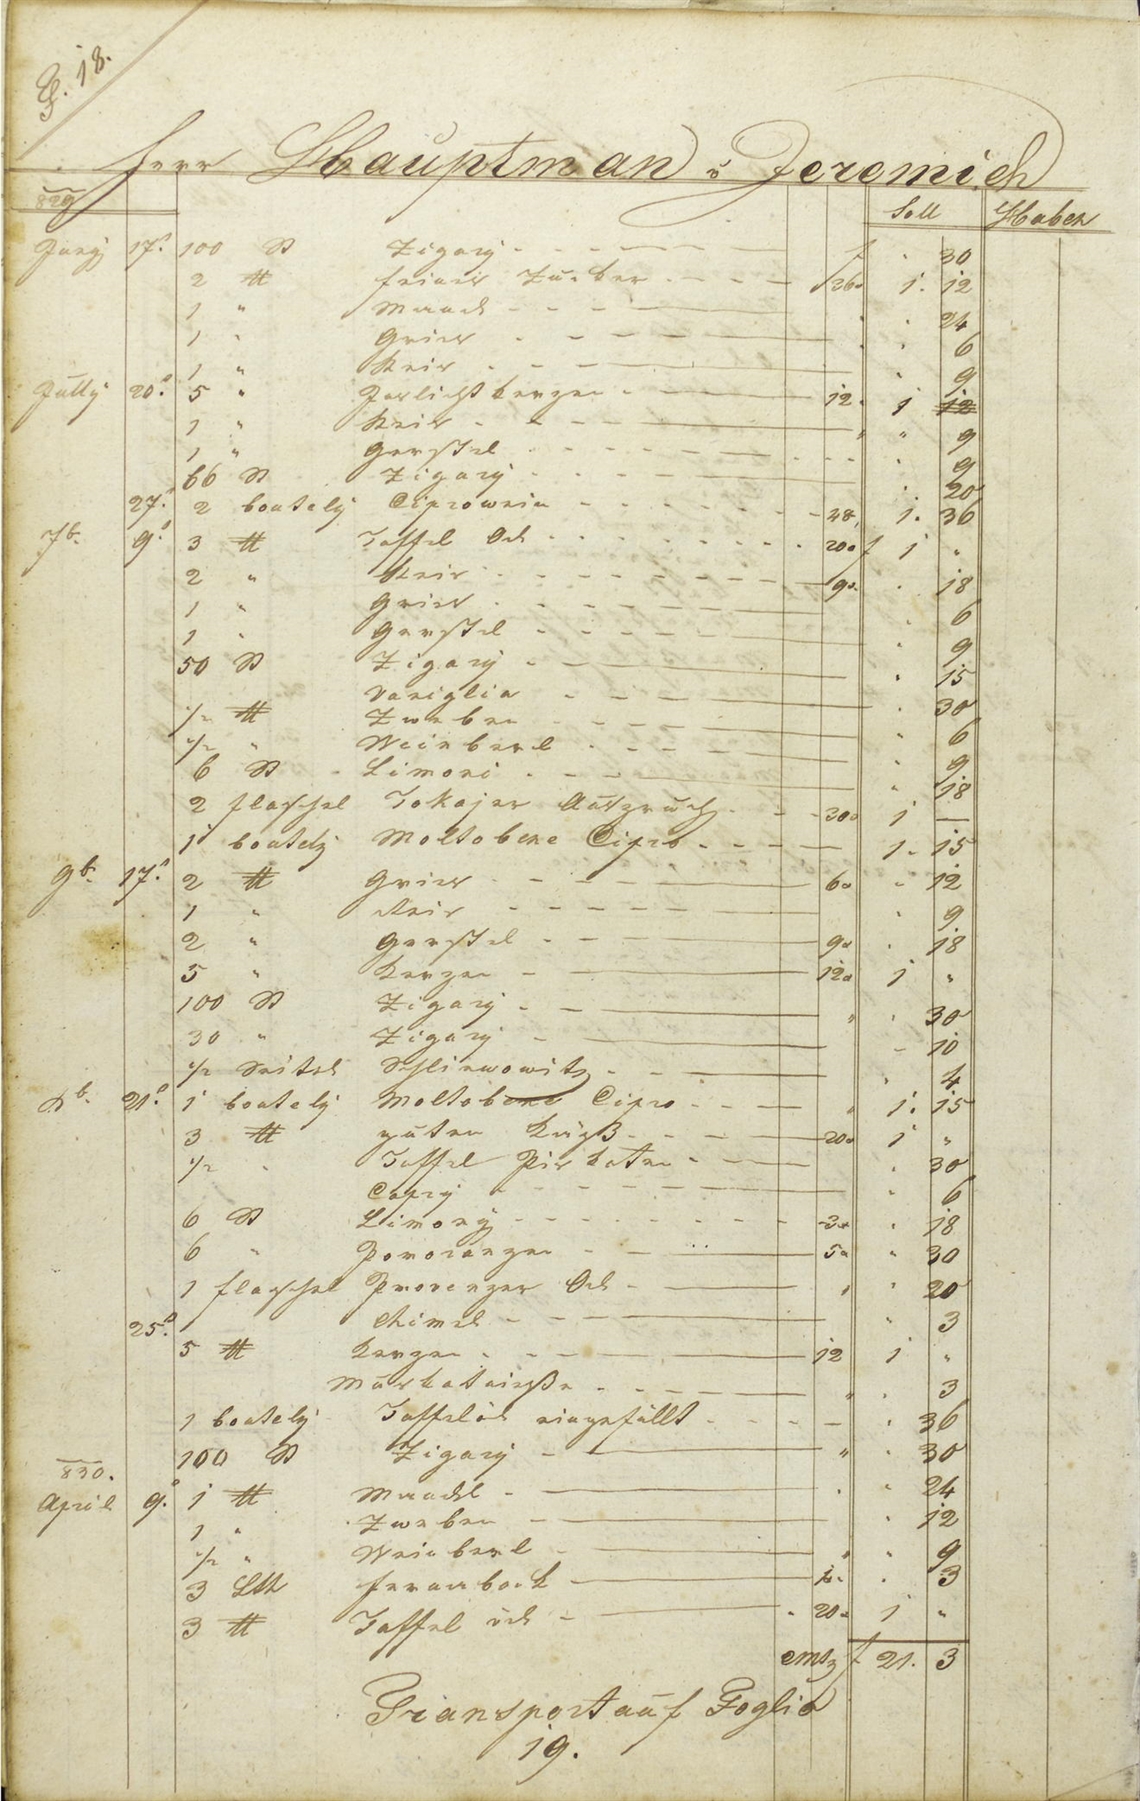 F. 18.
Herr Hauptman v Jeremich
829
Soll Haben
Juny 17. 100 St Zigary 30
2 ℔ feiner Zucker 36 1. 12
1 " Mandl 24
1 " Gries 6
1 " Reis 9
July 20. 5 " Inslicht kerzen 12 1 12
1 " Reis " " 9
1 " Gerstel 9
66 St Zigary 20
27. 2 boutely Ciprowein 48 1. 36
7b. 9. 3 ℔ Taffel Oel 20 f 1 "
2 " Reis 9 18
1 " Gries 6
1 " Gerstel 9
50 St Zigary 15
Vaniglia 30
1/2 ℔ Zweben 6
1/2 " Weinberl 9
6 St Limoni 18
2 flaschel Tokajer Auszruch 30 1 —
1 boutely Moltobene Cipro 1. 15
9b. 17. 2 ℔ Gries 6 12
1 " Reis 9
2 " Gerstel 9 18
5 " Kerzen 12 1 "
100 St Zigary " 30
30 " Zigary 10
1/2 Seitel Schliwowitz 4
Xb. 21. 1 boutely Moltobene Cipro " 1. 15
3 ℔ guten 20 1 "
1/2 Taffel 30
Capry 6
6 St Limony 3 18
6 " Pomoranzen 5 " 30
1 flaschel Provenzer Oel " 20
25. Kimel 3
5 ℔ Kerzen 12 1 "
Muskatniße " 3
1 boutely Taffelöl eingefüllt 36
100 St Zigary " 30
830.
April 9. 1 ℔ Mandl 24
1 " Zweben 12
1/2 " Weinberl " " 9
3 Lth fernabock 3
3 ℔ Taffel öel 20 1 "
f 21. 3
Transport auf Foglio
19.